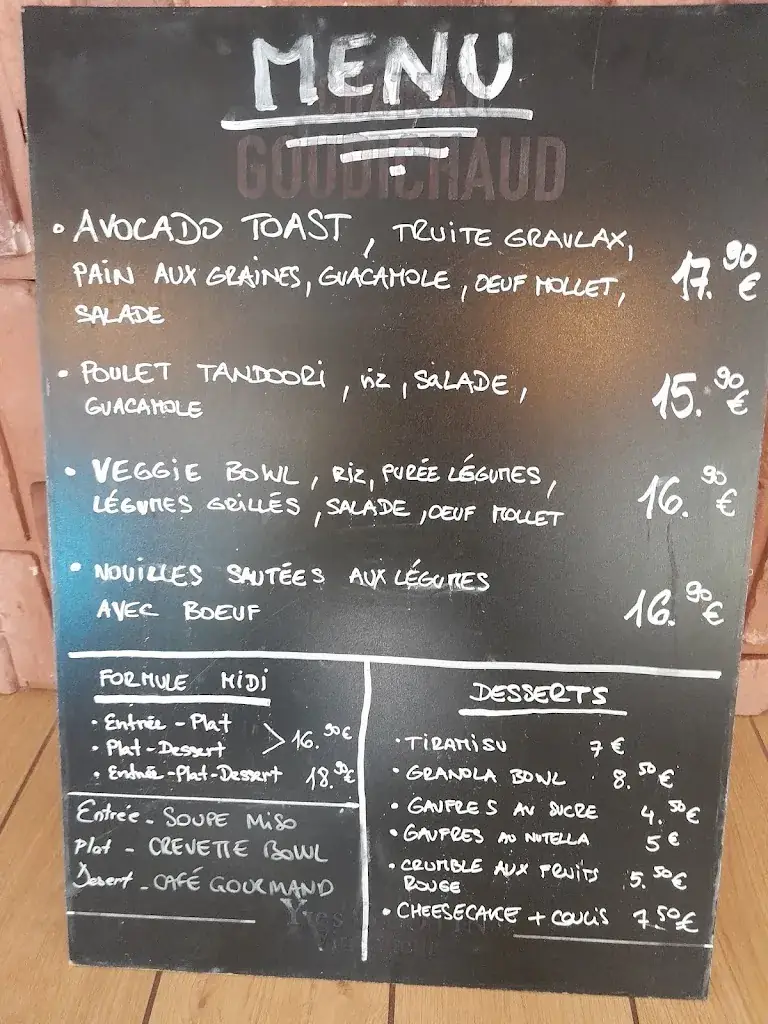 MENU
GOUDICHAUD
• AVOCADO TOAST, TRUITE GRAVLAX,
PAIN AUX GRAINES, GUACAMOLE, OEUF MOLLET,
SALADE
17.90 €
• POULET TANDOORI, riz, SALADE,
GUACAMOLE
15.90 €
• VEGGIE BOWL, RIZ, PURÉE LÉGUMES,
LÉGUMES GRILLÉS, SALADE, OEUF MOLLET
16.90 €
• NOUILLES SAUTÉES AUX LÉGUMES
AVEC BOEUF
16.90 €
FORMULE MIDI
• Entrée - Plat
• Plat - Dessert
> 16.90€
• Entrée - Plat - Dessert 18.90€
Entrée - SOUPE MISO
Plat - CREVETTE BOWL
Dessert - CAFÉ GOURMAND
DESSERTS
• TIRAMISU 7 €
• GRANOLA BOWL 8.50 €
• GAUFRES AU SUCRE 4.50 €
• GAUFRES AU NUTELLA 5 €
• CRUMBLE AUX FRUITS
ROUGE 5.50€
• CHEESECAKE + COULIS 7.50€